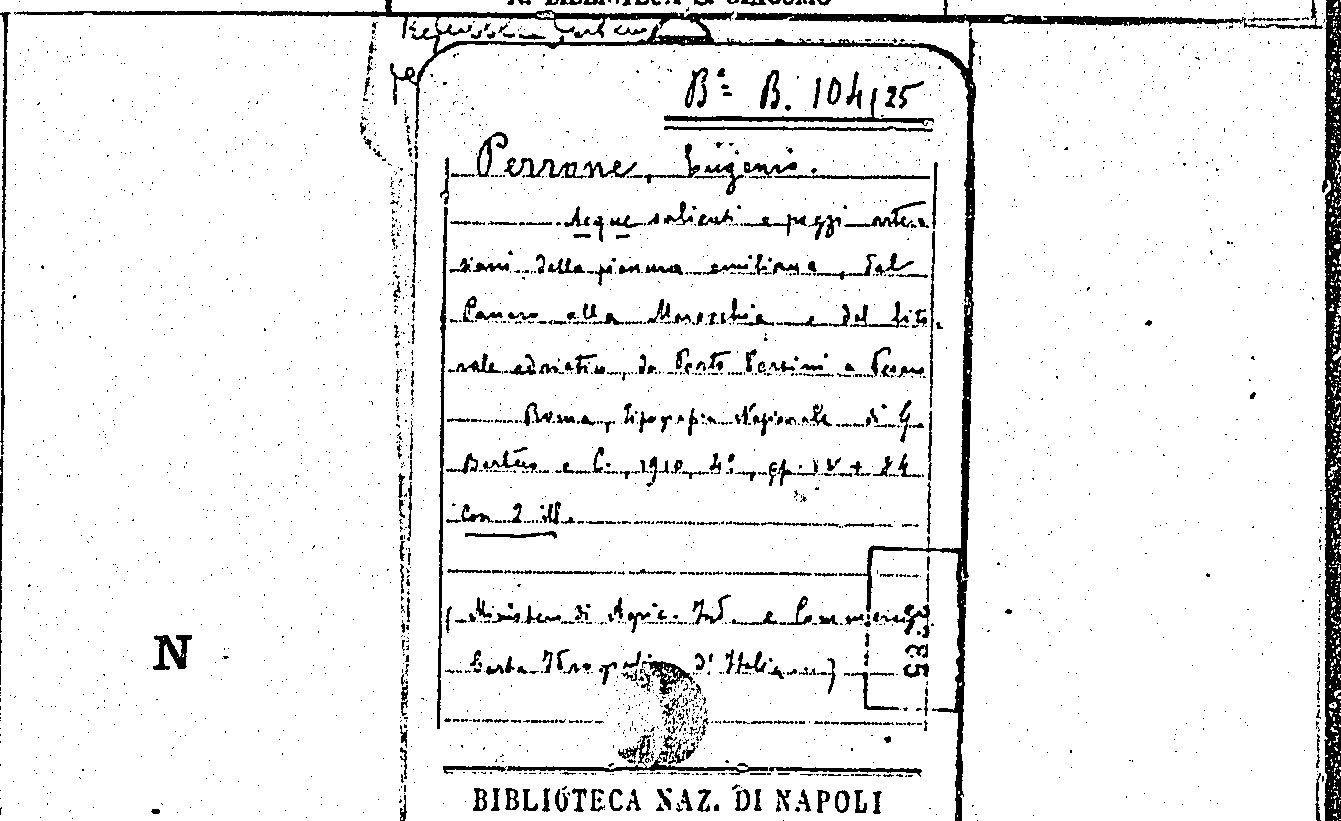 Bª B. 104/25
Perrone, Eugenio.
Acque salienti e pozzi arte-
siani della pianura emiliana, dal
Panaro alla Marecchia e del lito-
rale adriatico, da Porto Corsini a Pesaro
Roma, Tipografia Nazionale di G.
Bertero e C., 1910, 4°, pp. + 84
con 2 ill.
(Ministero di Agric. Ind. e Commercio
Carta Idrografica d'Italia)
N
BIBLIOTECA NAZ. DI NAPOLI